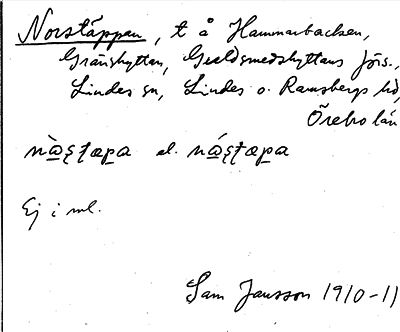 Norstäppan, t å Hammarbacken,
Gränshyttan, Guldsmedshyttans förs.,
Lindes sn, Lindes o. Ramsbergs hd,
Örebro län
el.
Ej i ml.
Sam Jansson 1910-11